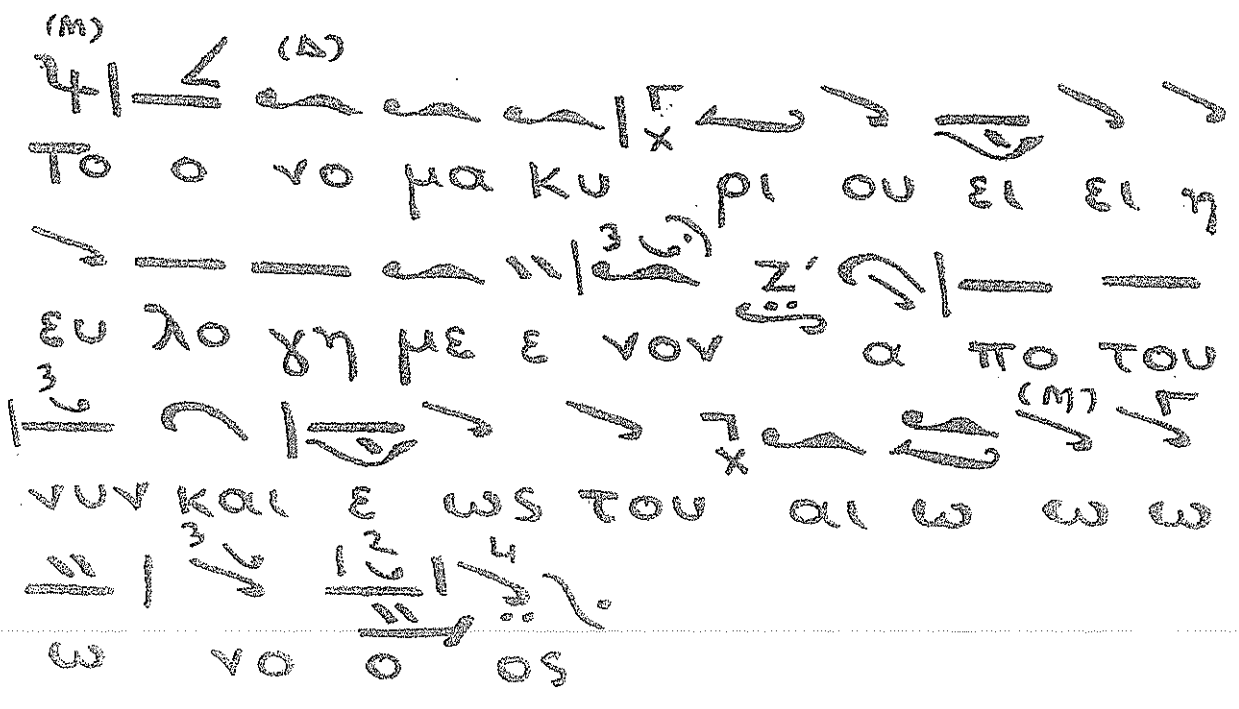 (Μ) (Δ)
Το ο νο μα κυ ρι ου ει ει η
3 Ζ΄
ευ λο γη με ε νον α πο του
3 (Μ)
νυν και ε ως του αι ω ω ω
3 2 4
ω νο ο ος